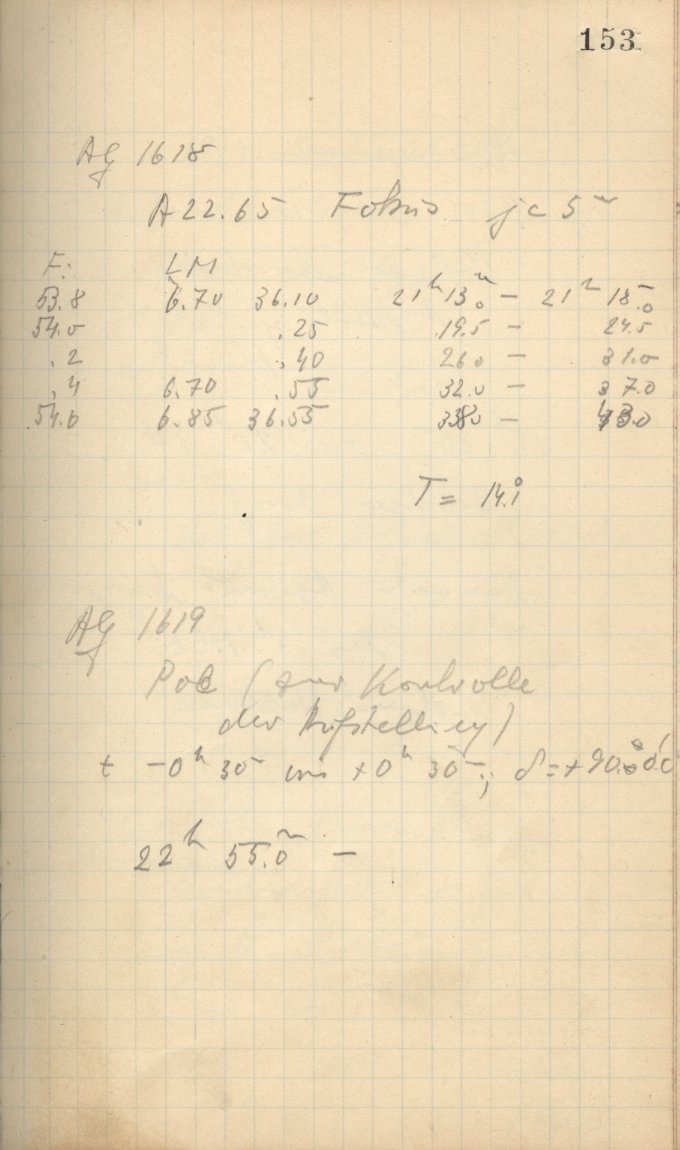 153
AG 1618
A 22.65 Fokus je 5ᵐ
F: LM
53.8 6.70 36.10 21ʰ 13.0ᵐ – 21ʰ 18.0ᵐ
54.0 .25 19.5 – 24.5
.2 .40 26.0 – 31.0
.4 6.70 .55 32.0 – 37.0
54.6 6.85 36.55 38.0 – 43.0
T = 14.1°
AG 1619
Pol (zur Kontrolle
der Aufstellung)
t –0ʰ 30ᵐ bis +0ʰ 30ᵐ; δ = +90° 0.0'
22ʰ 55.0ᵐ –